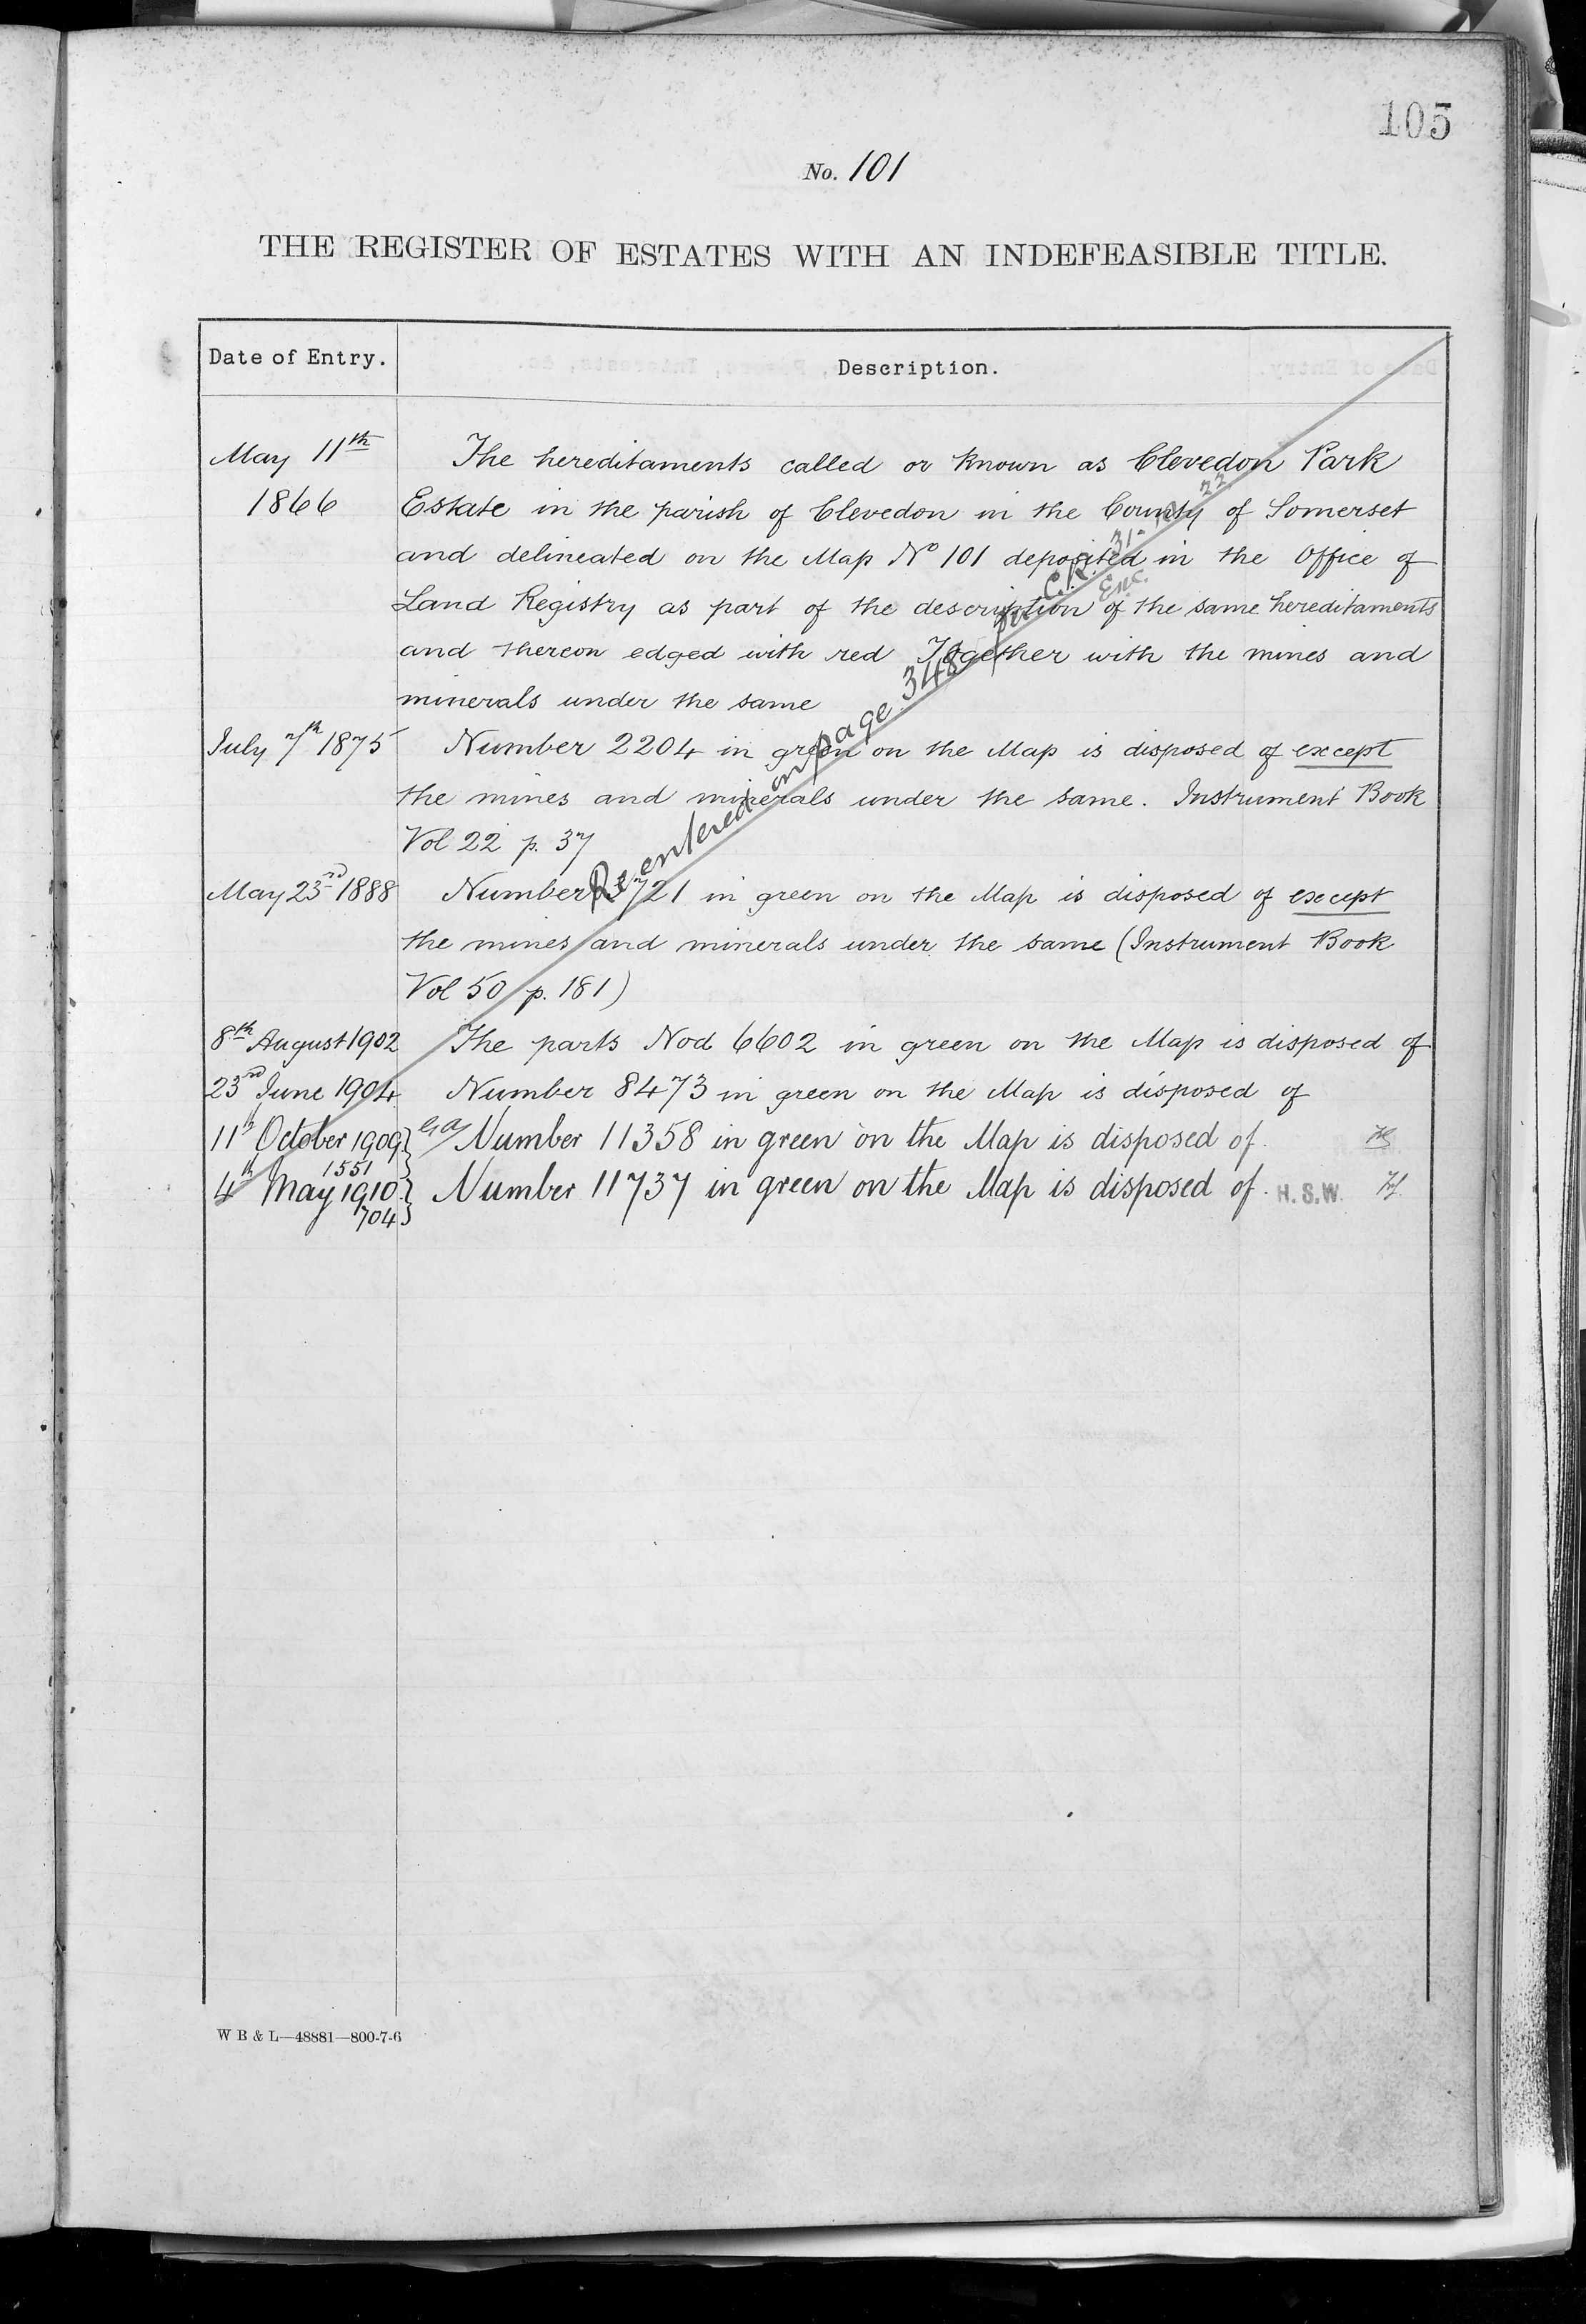 105
No. 101
THE REGISTER OF ESTATES WITH AN INDEFEASIBLE TITLE.
Date of Entry.
Description.
May 11th
1866
The hereditaments called or known as Clevedon Park
Estate in the parish of Clevedon in the County of Somerset
and delineated on the Map No 101 deposited in the Office of
Land Registry as part of the description of the same hereditaments
and thereon edged with red Together with the mines and
minerals under the same
July 7th 1875
Number 2204 in green on the Map is disposed of except
the mines and minerals under the same. Instrument Book
Vol 22 p. 37
May 23rd 1888
Number 3721 in green on the Map is disposed of except
the mines and minerals under the same (Instrument Book
Vol 50 p. 181)
8th August 1902
The parts Nod 6602 in green on the Map is disposed of
23rd June 1904
Number 8473 in green on the Map is disposed of
11th October 1909
1551
Number 11358 in green on the Map is disposed of.
4th May 1910
704
Number 11737 in green on the Map is disposed of. H.S.W.
Re entered on page 348
22
Enc.
W B & L—48881—800-7-6